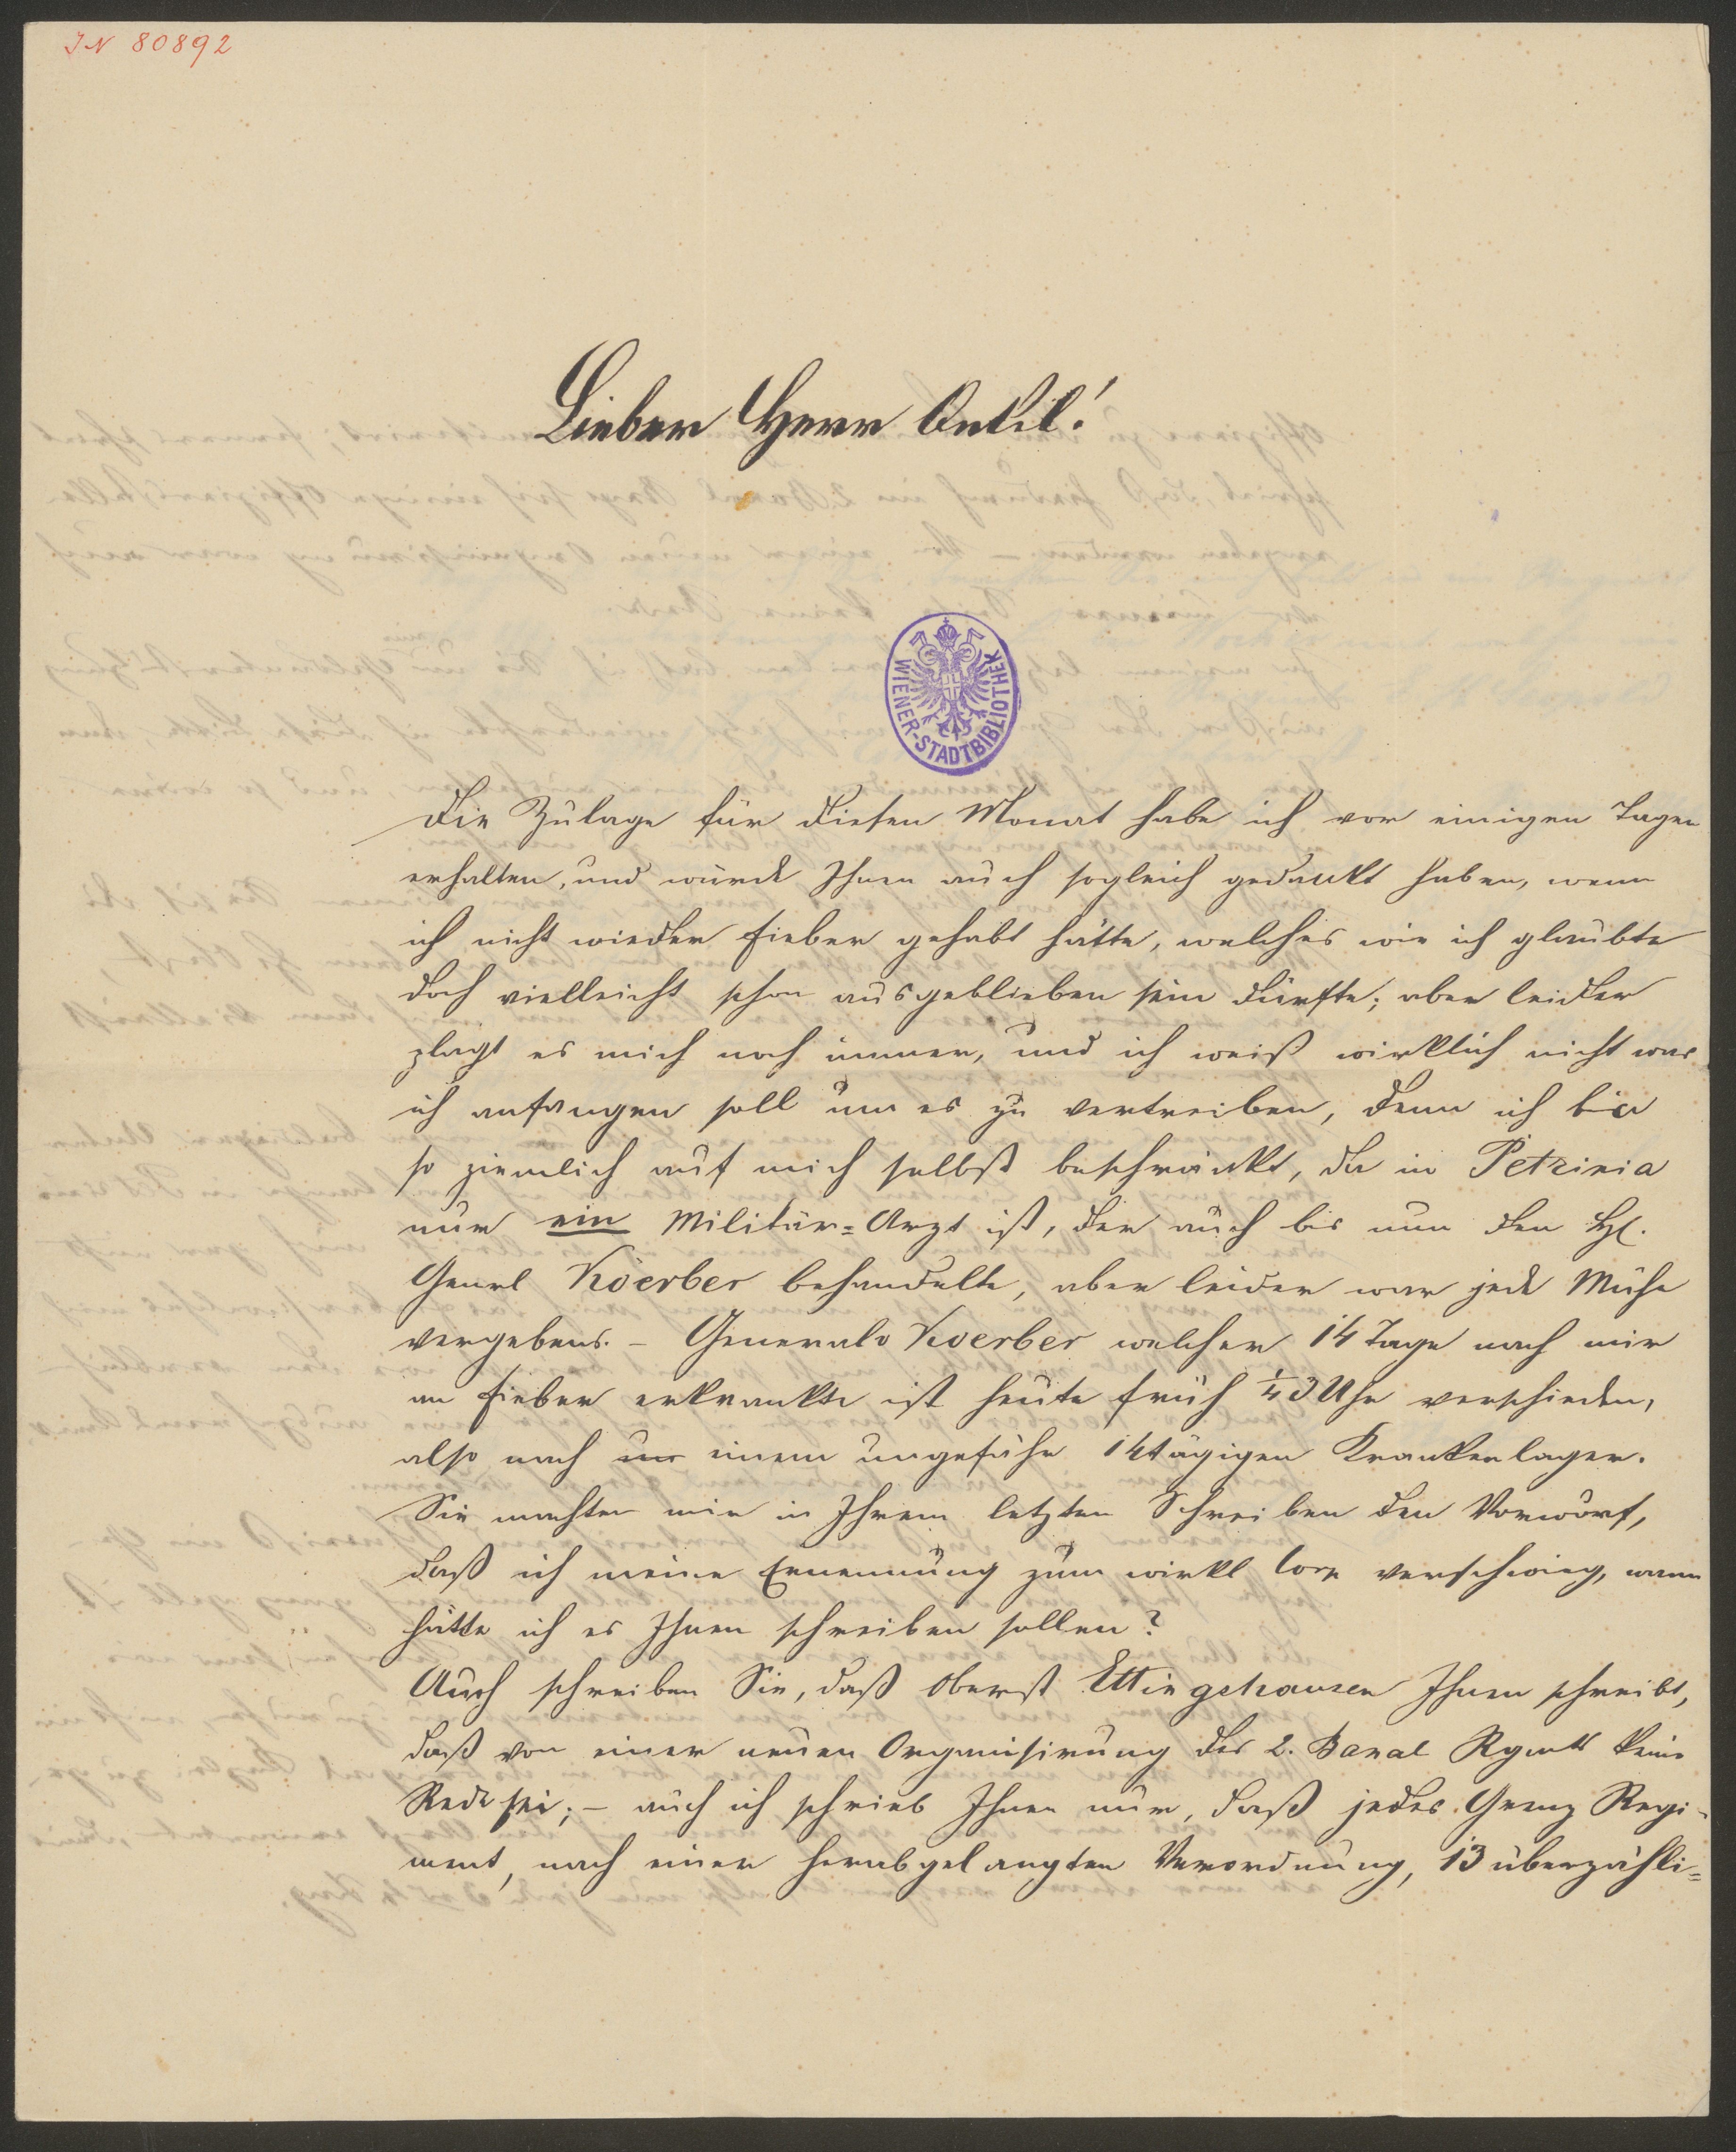 IN 80892
Lieber Herr Onkel!
WIENER-STADTBIBLIOTHEK
Die Zulage für diesen Monat habe ich vor einigen Tagen
erhalten, und würde Ihnen auch sogleich gedankt haben, wenn
ich nicht wieder Fieber gehabt hätte, welches wie ich glaubte
doch vielleicht schon ausgeblieben sein dürfte; aber leider
plagt es mich noch immer, und ich weiß wirklich nicht was
ich anfangen soll um es zu vertreiben, denn ich bin
so ziemlich auf mich selbst beschränkt, da in Petrinia
nur ein Militär=Arzt ist, der auch bis nun den H.
Genrl Köerber behandelte, aber leider war jede Mühe
vergebens. – General v Koerber welcher 14 Tage nach mir
an Fieber erkrankte ist heute früh ¼3 Uhr verschieden,
also nach einem ungefähr 14tägigen Krankenlager.
Sie machten mir in Ihrem letzten Schreiben den Vorwurf,
daß ich meine Ernennung zum wirkl Corp verschwieg, wann
hätte ich es Ihnen schreiben sollen?
Auch schreiben Sie, daß Oberst Ettingshausen Ihnen schreibt,
daß von einer neuen Organisirung des 2. Banal Rgmts keine
Rede sei; – auch ich schrieb Ihnen nur, daß jedes Grenz Regi-
ment, nach einer herabgelangten Verordnung, 13 überzähli=